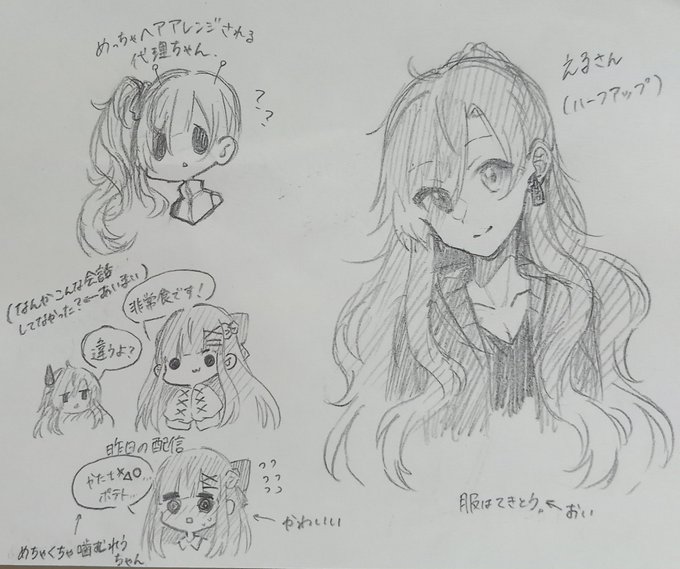 めっちゃヘアアレンジされる
代理ちゃん.
??
えるさん
(ハーフアップ)
(なんかこんな会話
してなかった?←あいまい)
非常食です!
違うよ?
昨日の配信
かたt×△○…
ポテト…
めちゃくちゃ噛むれう
ちゃん
←かわいい
服はてきとう。←おい